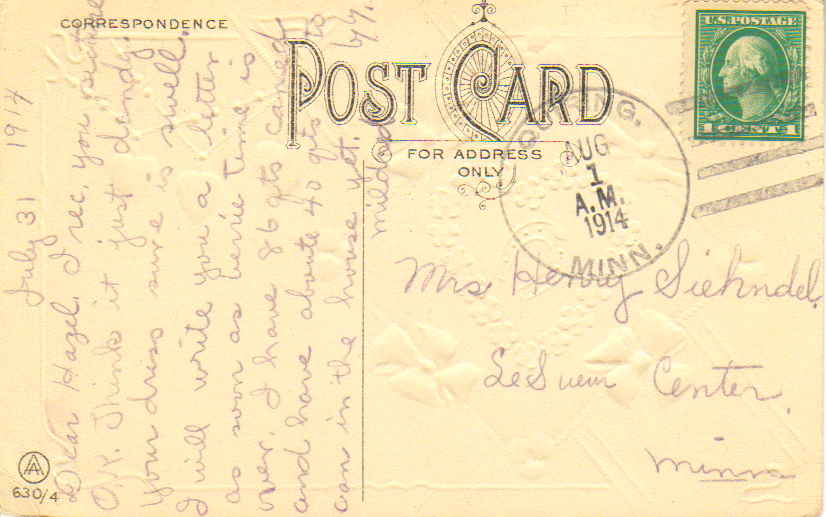 CORRESPONDENCE
POST CARD
FOR ADDRESS
ONLY
U.S. POSTAGE
1 CENT 1
AUG
1
A.M.
1914
MINN.
July 31 1914
Dear Hazel. I rec. you
O.K. Think it just dandy.
your dress sure is swell.
I will write you a letter
as soon as berrie time is
over. I have 86 qts caned
and have aboute 40 qts to
can in the house yet. by by.
mildred
Mrs Henry Siehndel.
LeSueur Center.
Minn
AA
630/4